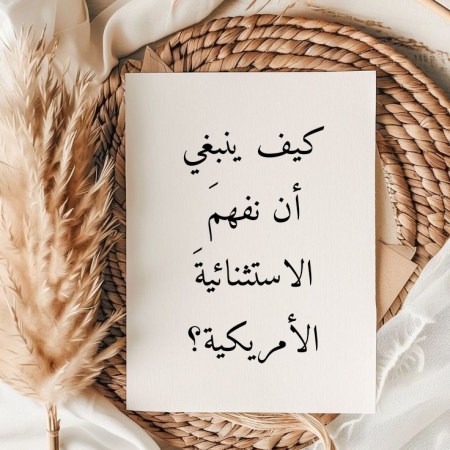 كيف ينبغي
أن نفهمَ
الاستثنائيةَ
الأمريكية؟